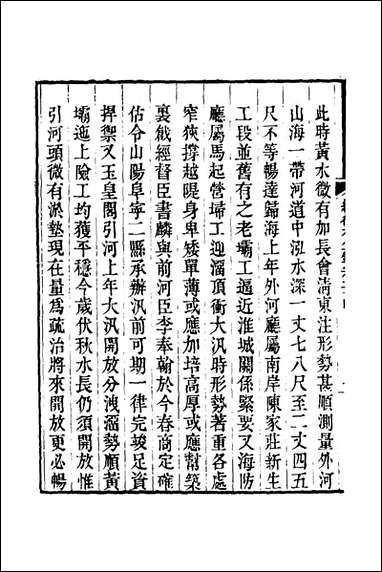 此時黃水微有加長會清東注形勢甚順測量外河
山海一帶河道中泓水深一丈七八尺至二丈四五
尺不等暢達歸海上年外河廳屬南岸陳家莊新生
工段並舊有之老壩工逼近淮城關係緊要又海防
廳屬馬起營埽工迎溜頂衝大汛時形勢著重各處
窄狹撐越隄身卑矮單薄或應加培高厚或應幫築
裏戧經督臣書麟與前河臣李奉翰於今春商定確
估令山陽阜寧二縣承辦汛前可期一律完竣足資
捍禦又玉皇閣引河上年大汛開放分洩溜勢順黃
壩迤上險工均獲平穩今歲伏秋水長仍須開放惟
引河頭微有淤墊現在量為疏治將來開放更必暢